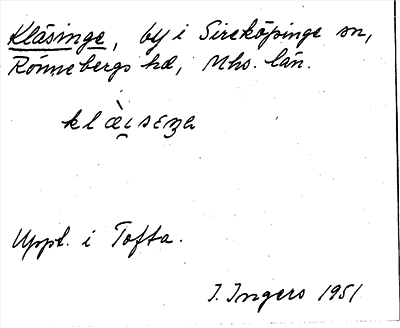 Kläsinge, by i Sireköpinge sn,
Rönnebergs hd, Mhs. län.
Uppl. i Tofta.
I. Ingers 1951